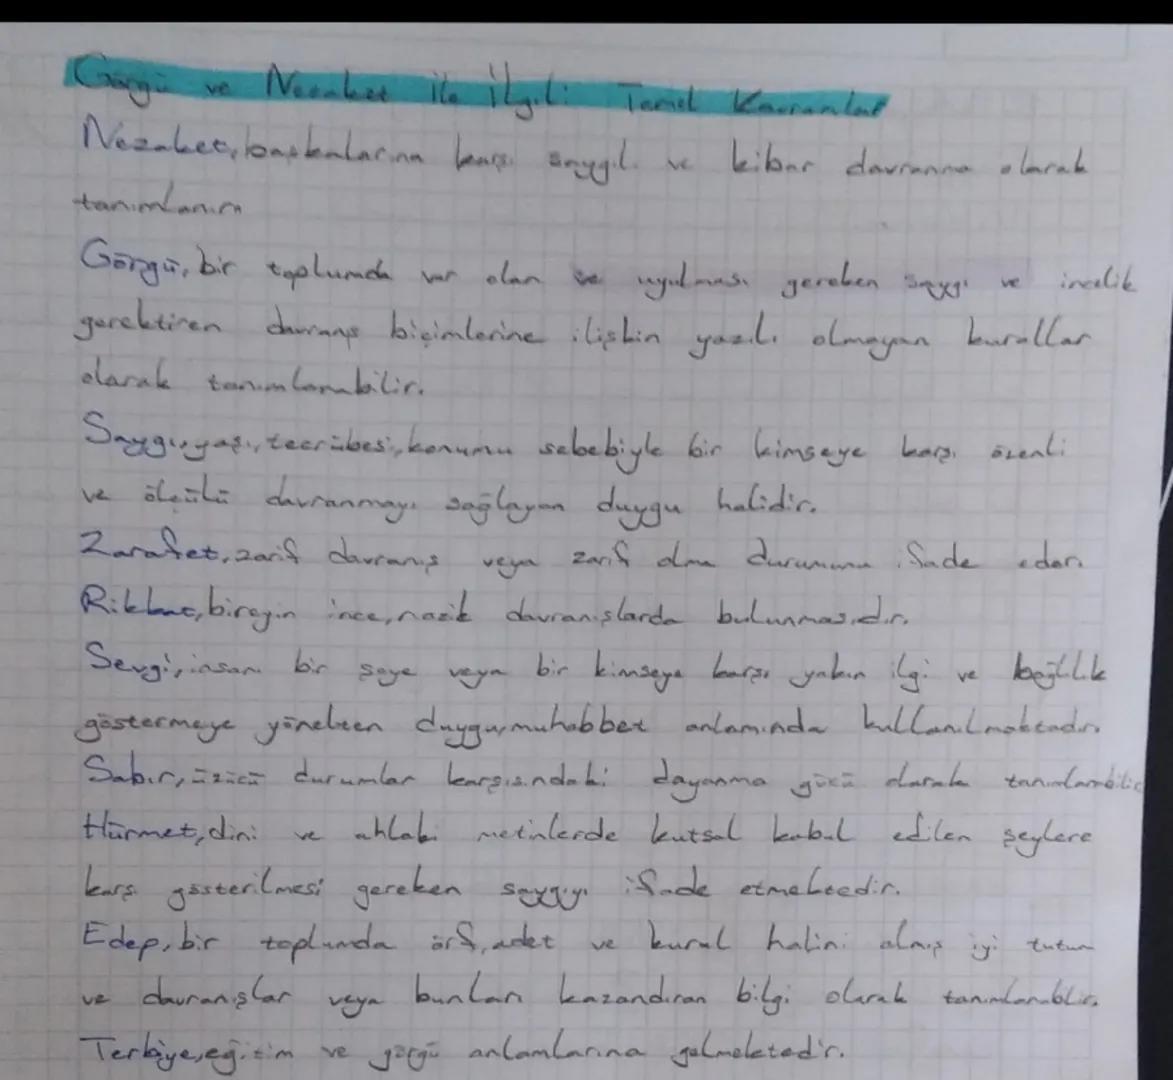 Görgü ve Nezaket ile İlgili Temel Kavramlar
Nezaket, başkalarına karşı saygılı ve kibar davranma olarak
tanımlanır.
Görgü, bir toplumda var olan ve uyulması gereken saygı ve incelik
gerektiren davranış biçimlerine ilişkin yazılı olmayan kurallar
olarak tanımlanabilir.
Saygı, yaşı, tecrübesi, konumu sebebiyle bir kimseye karşı özenli
ve ölçülü davranmayı sağlayan duygu halidir.
Zarafet, zarif davranış veya zarif olma durumunu ifade eder.
Rikkat, bireyin ince, nazik davranışlarda bulunmasıdır.
Sevgi, insanı bir şeye veya bir kimseye karşı yakın ilgi ve bağlılık
göstermeye yönelten duygu, muhabbet anlamında kullanılmaktadır.
Sabır, üzücü durumlar karşısındaki dayanma gücü olarak tanımlanabilir
Hürmet, dini ve ahlaki metinlerde kutsal kabul edilen şeylere
karşı gösterilmesi gereken saygıyı ifade etmektedir.
Edep, bir toplumda örf, adet ve kural halini almış iyi tutum
ve davranışlar veya bunları kazandıran bilgi olarak tanımlanabilir.
Terbiye, eğitim ve görgü anlamlarına gelmektedir.